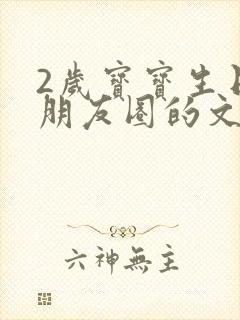 2歲寶寶生日
朋友圈的文
六神無主